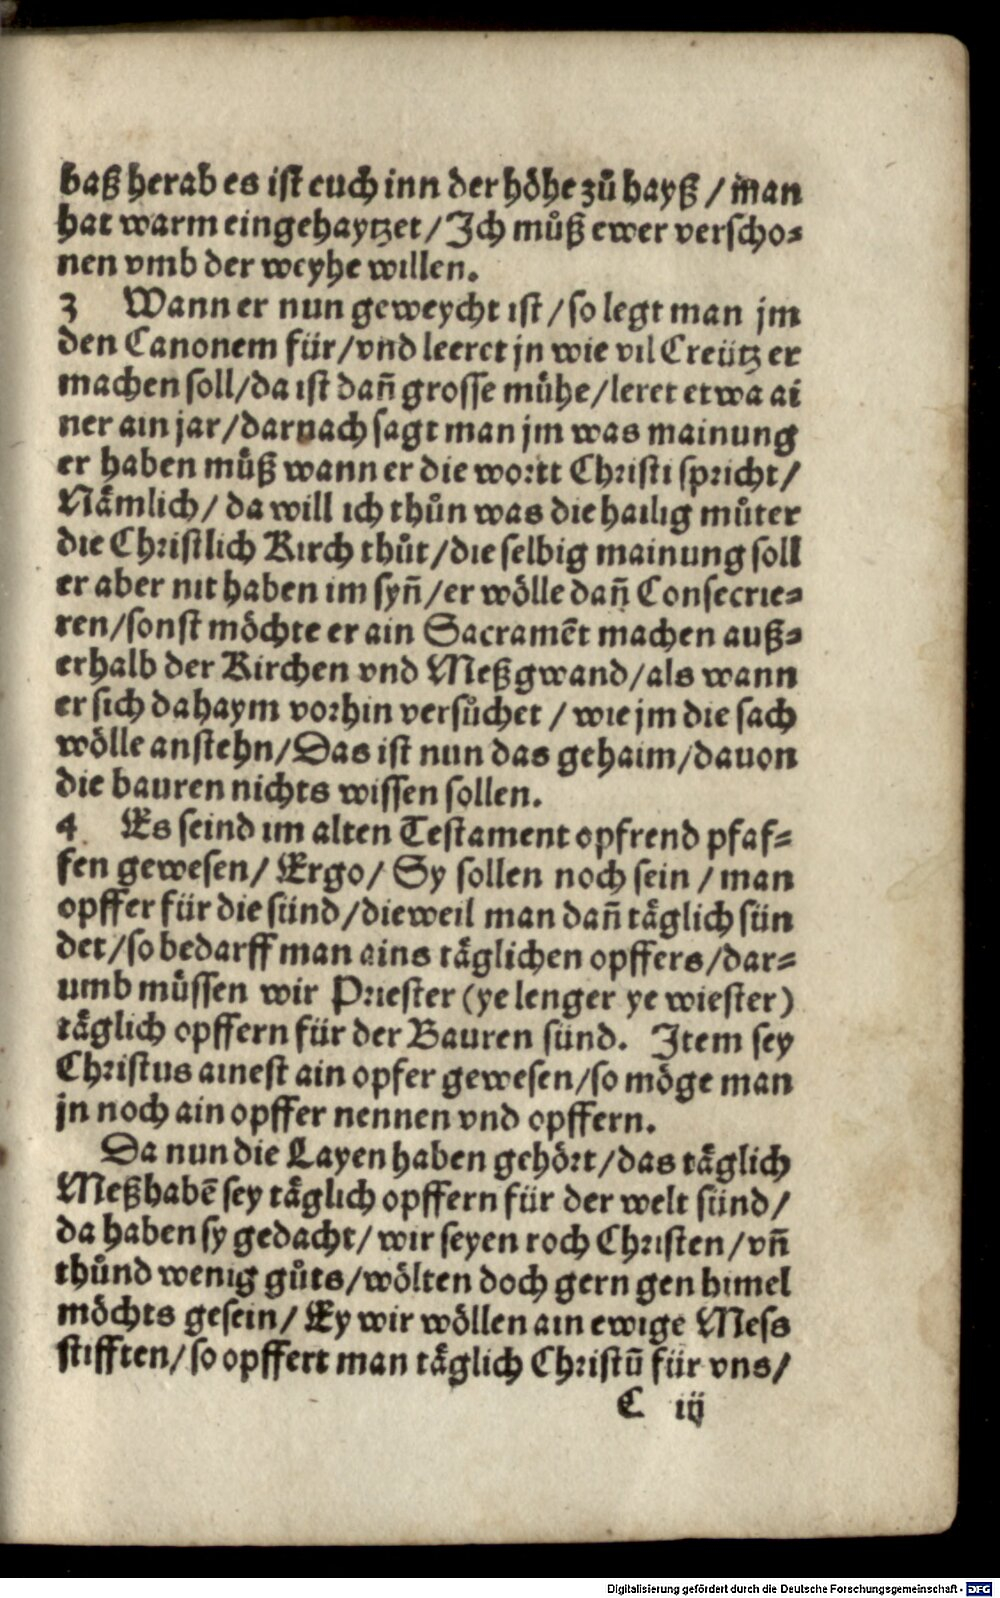 baß herab es ist euch inn der höhe zů hayß / man
hat warm eingehaytzet / Ich můß ewer verscho⸗
nen vmb der weyhe willen.
3 Wann er nun geweycht ist / so legt man jm
den Canonem für / vnd leeret jn wie vil Creütz er
machen soll / da ist dañ grosse mühe / leret etwa ai
ner ain jar / darnach sagt man jm was mainung
er haben můß wann er die wortt Christi spricht /
Nämlich / da will ich thůn was die hailig můter
die Christlich Kirch thůt / die selbig mainung soll
er aber nit haben im syñ / er wölle dañ Consecrie⸗
ren / sonst möchte er ain Sacramēt machen auß⸗
erhalb der Kirchen vnd Meßgwand / als wann
er sich dahaym vorhin versůchet / wie jm die sach
wölle anstehn / Das ist nun das gehaim / dauon
die bauren nichts wissen sollen.
4 Es seind im alten Testament opfrend pfaf⸗
fen gewesen / Ergo / Sy sollen noch sein / man
opffer für die sünd / dieweil man dañ täglich sün
det / so bedarff man ains täglichen opffers / dar⸗
umb müssen wir Priester (ye lenger ye wiester)
täglich opffern für der Bauren sünd. Item sey
Christus ainest ain opfer gewesen / so möge man
jn noch ain opffer nennen vnd opffern.
Da nun die Layen haben gehört / das täglich
Meß habē sey täglich opffern für der welt sünd /
da haben sy gedacht / wir seyen roch Christen / vñ
thůnd wenig gůts / wölten doch gern gen himel
möchts gesein / Ey wir wöllen ain ewige Mess
stifften / so opffert man täglich Christū für vns /
C iij
Digitalisierung gefördert durch die Deutsche Forschungsgemeinschaft - DFG